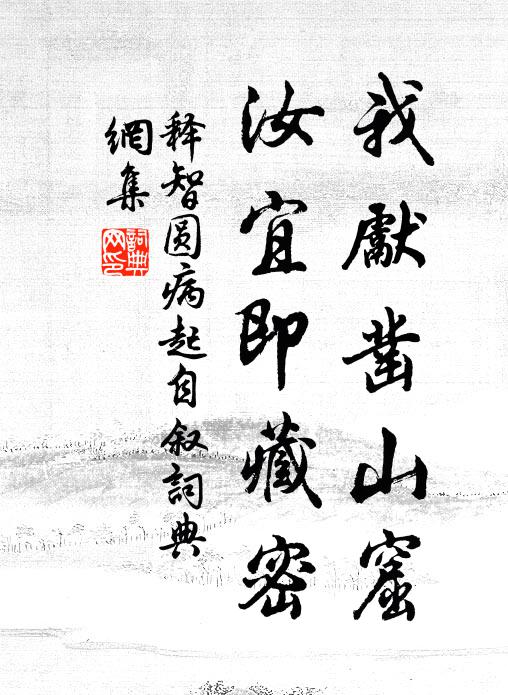 我獻凿山窟
汝宜即藏密
释智圆病起自叙詞典
網集
詞典
网印